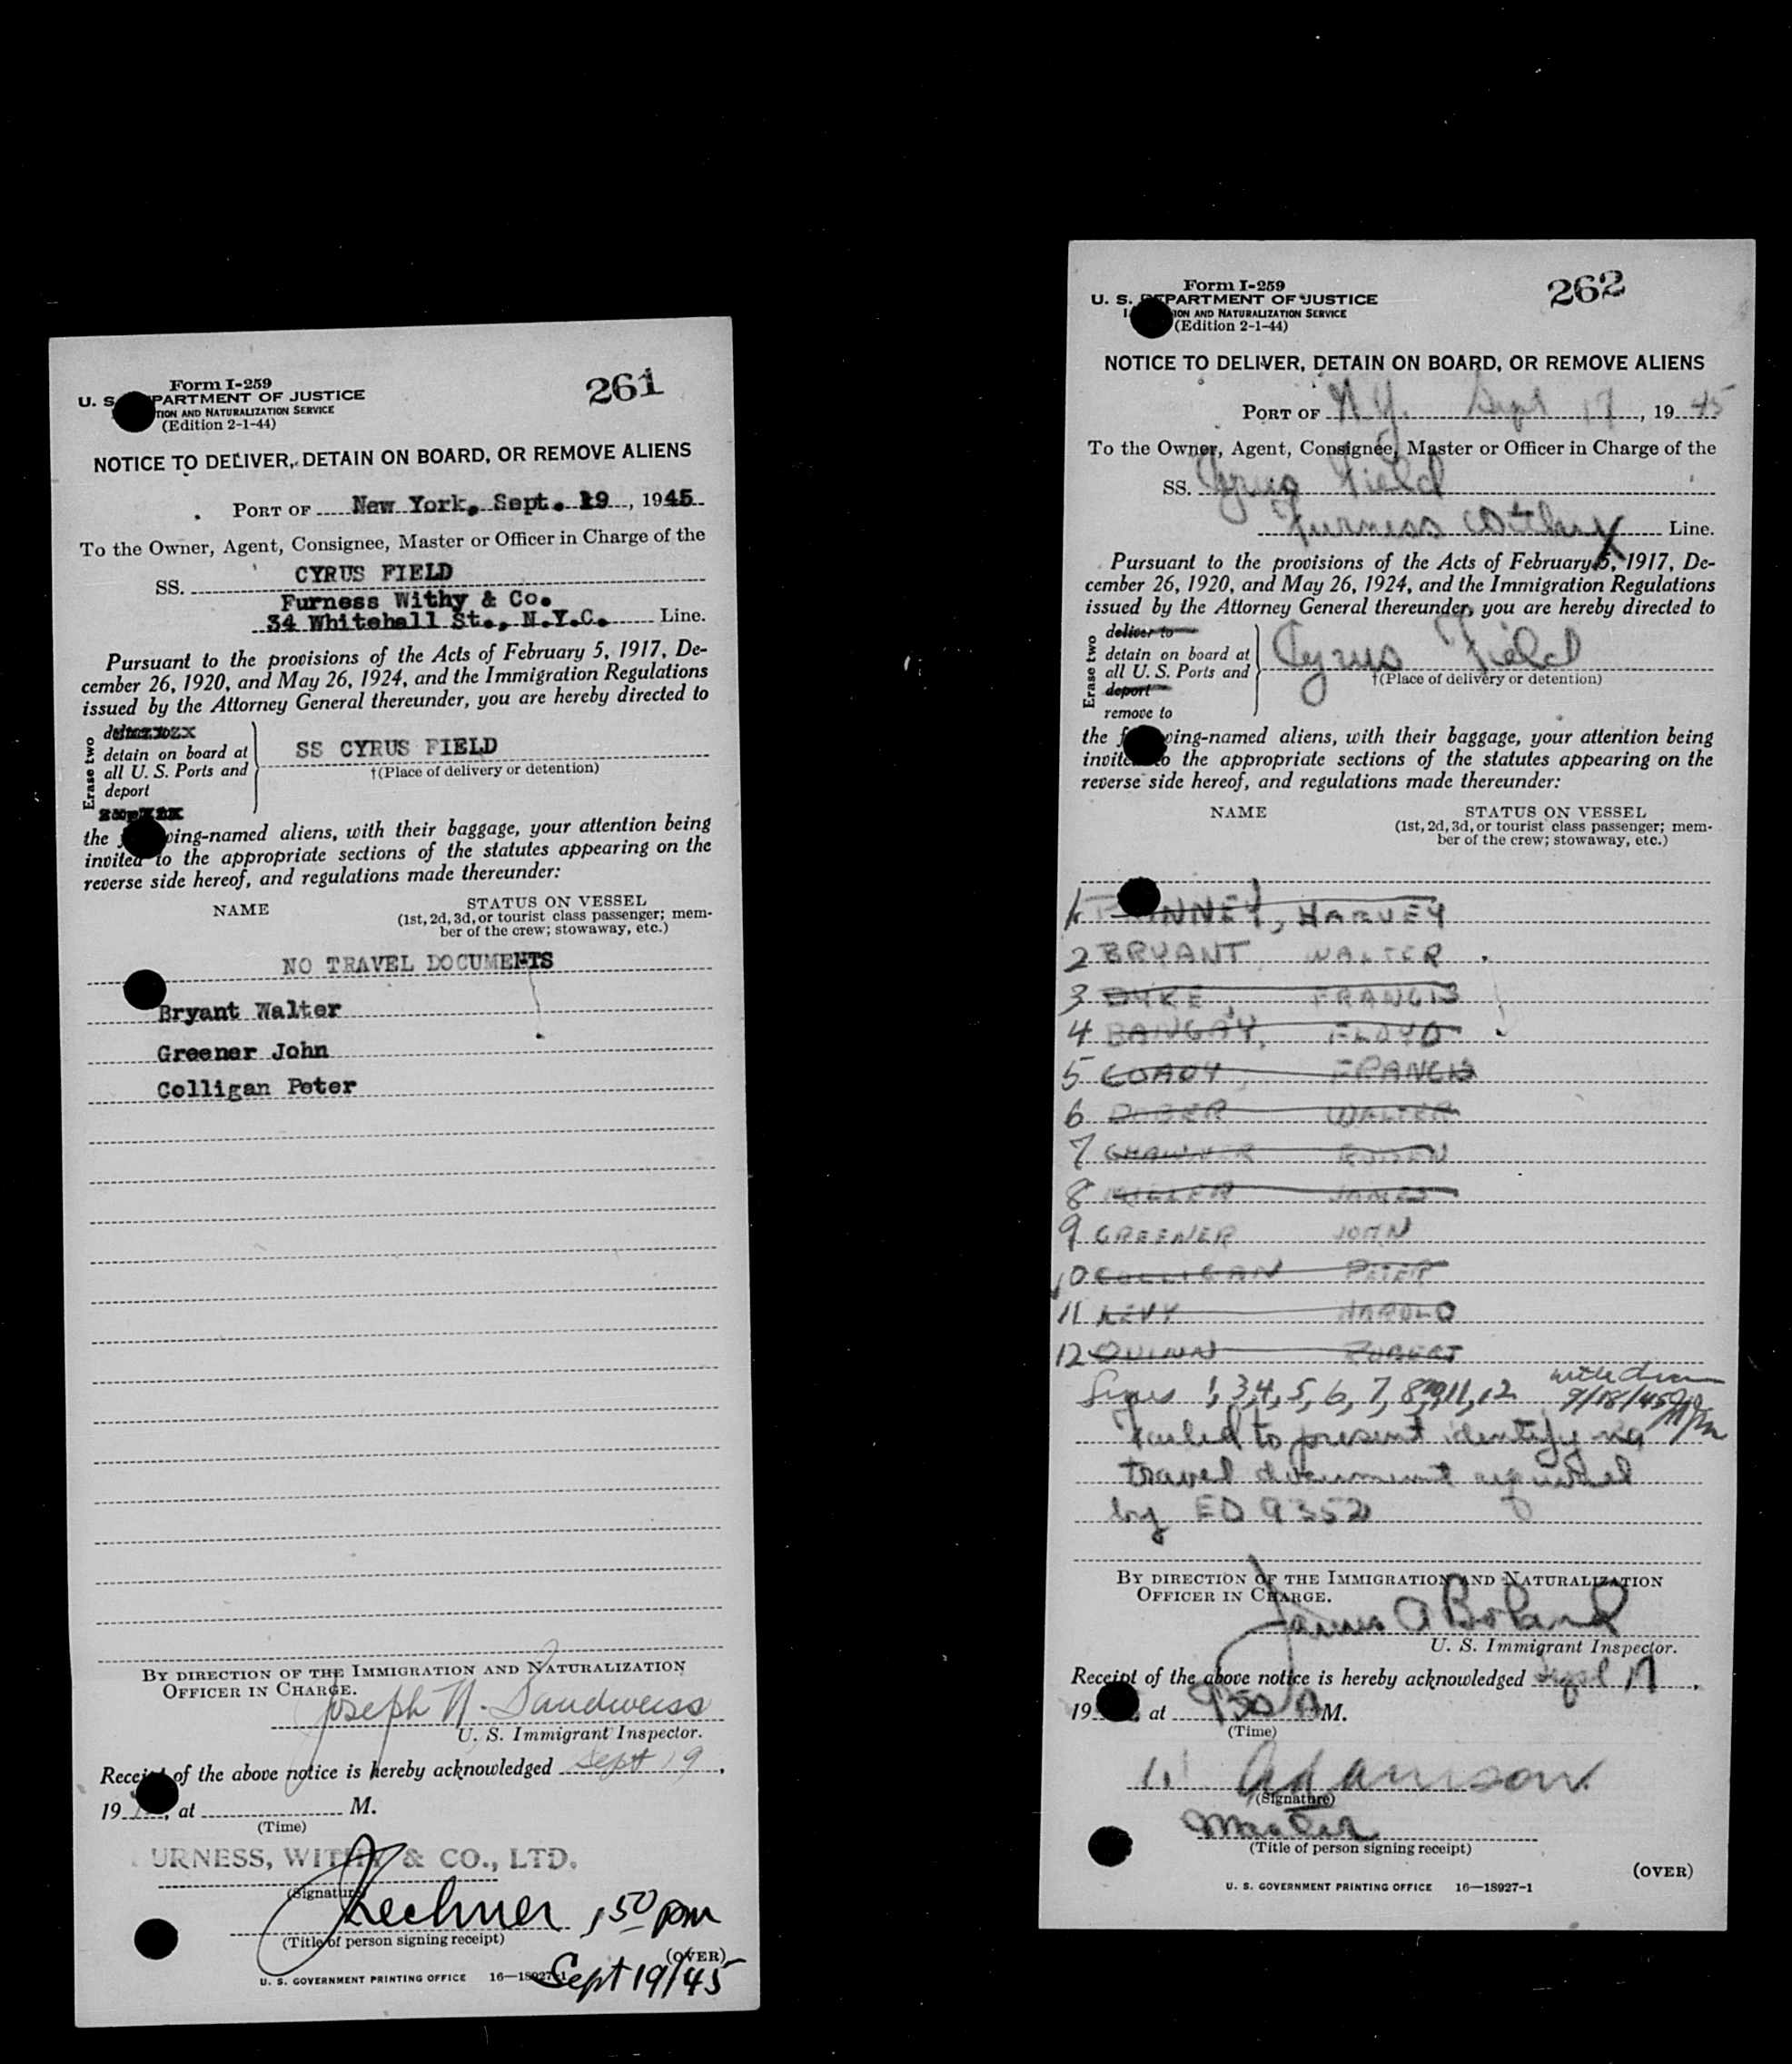 Form I-259
261
U. S. PARTMENT OF JUSTICE
TION AND NATURALIZATION SERVICE
(Edition 2-1-44)
NOTICE TO DELIVER, DETAIN ON BOARD, OR REMOVE ALIENS
PORT OF New York, Sept. 19, 1945
To the Owner, Agent, Consignee, Master or Officer in Charge of the
SS. CYRUS FIELD
Furness Withy & Co.
34 Whitehall St., N.Y.C. Line.
Pursuant to the provisions of the Acts of February 5, 1917, De-
cember 26, 1920, and May 26, 1924, and the Immigration Regulations
issued by the Attorney General thereunder, you are hereby directed to
Erase two
detain on board at
all U. S. Ports and
deport
SS CYRUS FIELD
†(Place of delivery or detention)
the wing-named aliens, with their baggage, your attention being
invited to the appropriate sections of the statutes appearing on the
reverse side hereof, and regulations made thereunder:
NAME
STATUS ON VESSEL
(1st, 2d, 3d, or tourist class passenger; mem-
ber of the crew; stowaway, etc.)
NO TRAVEL DOCUMENTS
Bryant Walter
Greener John
Colligan Peter
BY DIRECTION OF THE IMMIGRATION AND NATURALIZATION
OFFICER IN CHARGE.
Joseph N. Sandweiss
U. S. Immigrant Inspector.
Receipt of the above notice is hereby acknowledged Sept 19,
19 , at M.
(Time)
URNESS, WITHY & CO., LTD.
(Signature)
Lechner 1 50 pm
(Title of person signing receipt)
(OVER)
U. S. GOVERNMENT PRINTING OFFICE 16—18927-1
Sept 19/45
Form I-259
262
U. S. DEPARTMENT OF JUSTICE
ION AND NATURALIZATION SERVICE
(Edition 2-1-44)
NOTICE TO DELIVER, DETAIN ON BOARD, OR REMOVE ALIENS
PORT OF N.Y. Sept 17, 1945
To the Owner, Agent, Consignee, Master or Officer in Charge of the
SS. Cyrus Field
Furness Withy Line.
Pursuant to the provisions of the Acts of February 5, 1917, De-
cember 26, 1920, and May 26, 1924, and the Immigration Regulations
issued by the Attorney General thereunder, you are hereby directed to
Erase two
deliver to
detain on board at
all U. S. Ports and
deport
remove to
Cyrus Field
†(Place of delivery or detention)
the wing-named aliens, with their baggage, your attention being
invited to the appropriate sections of the statutes appearing on the
reverse side hereof, and regulations made thereunder:
NAME
STATUS ON VESSEL
(1st, 2d, 3d, or tourist class passenger; mem-
ber of the crew; stowaway, etc.)
1 NNEY, HARVEY
2 BRYANT WALTER
3 DYKE, FRANCIS
4 BANGAY, FLOYD
5 COADY, FRANCIS
6 DOBER WALTER
7 RUBEN
8 MILLER JAMES
9 GREENER JOHN
10 COLLIGAN PETER
11 LEVY HAROLD
12 QUINN ROBERT
Lines 1, 3, 4, 5, 6, 7, 8, 10, 11, 12 withdrawn
9/18/45
Failed to present identifying
travel document required
by EO 9352
BY DIRECTION OF THE IMMIGRATION AND NATURALIZATION
OFFICER IN CHARGE.
James A Boland
U. S. Immigrant Inspector.
Receipt of the above notice is hereby acknowledged Sept 17,
19 , at 9 50 A M.
(Time)
Adamson
(Signature)
Master
(Title of person signing receipt)
(OVER)
U. S. GOVERNMENT PRINTING OFFICE 16—18927-1